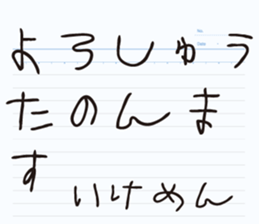 よろしゅう
たのんま
す
いけめん